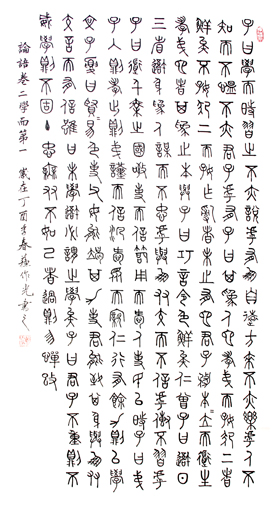 子曰學而時習之不亦說乎有朋自遠方來不亦樂乎人不
知而不慍不亦君子乎有子曰其為人也孝弟而好犯上者
鮮矣不好犯上而好作亂者未之有也君子務本=立而道生
孝弟也者其為仁之本與子曰巧言令色鮮矣仁曾子曰吾日
三省吾身為人謀而不忠乎與朋友交而不信乎傳不習乎
子曰道千乘之國敬事而信節用而愛人使民以時子曰弟
子入則孝出則弟謹而信汎愛眾而親仁行有餘力則以學
文子夏曰賢=易色事父母能竭其力事君能致其身與朋
友交言而有信雖曰未學吾必謂之學矣子曰君子不重則不
威學則不固主忠信無友不如己者過則勿憚改
論語卷二學而第一 歲在丁酉春作光書